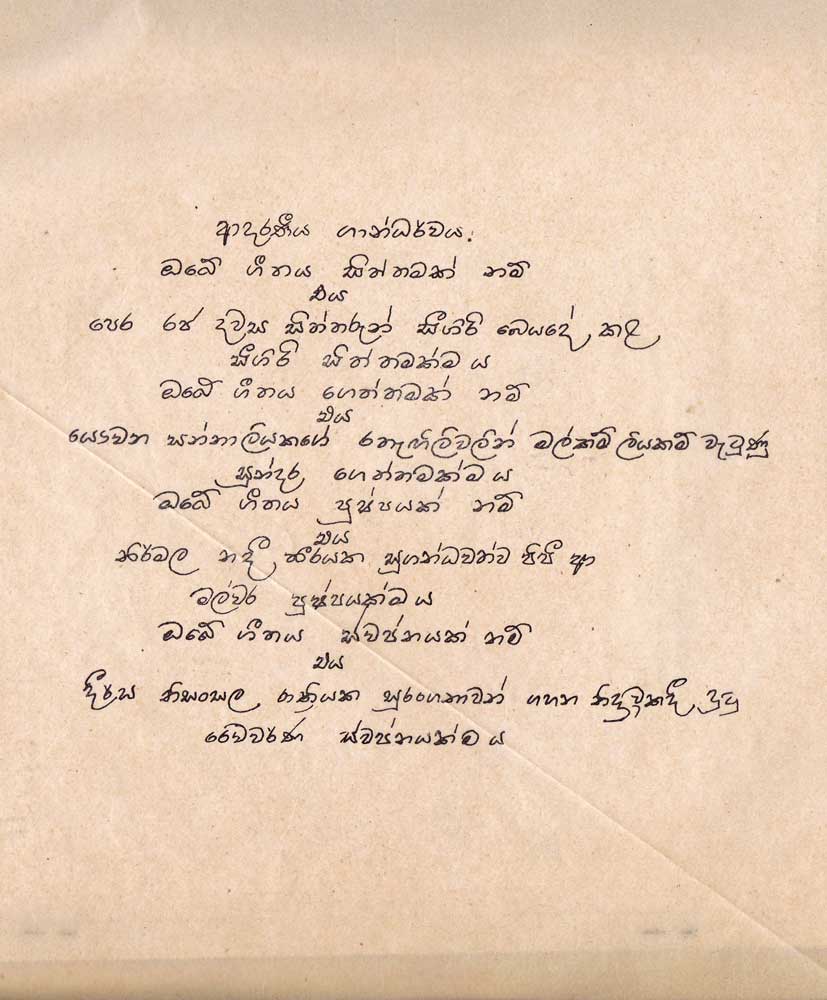 ආදරණීය ගාන්ධර්වය.
ඔබේ ගීතය සිත්තමක් නම්
එය
පෙර රජ දවස සිත්තරුන් සීගිරි බෙයදේ කළ
සීගිරි සිත්තමක්ම ය
ඔබේ ගීතය ගෙත්තමක් නම්
එය
යෞවන සන්නාලියකගේ රතැඟිලිවලින් මල්කම් ලියකම් වැවුණු
සුන්දර ගෙත්තමක්ම ය
ඔබේ ගීතය පුෂ්පයක් නම්
එය
නිර්මල නදී තීරයක සුගන්ධවත්ව පිපී ආ
මල්වර පුෂ්පයක්ම ය
ඔබේ ගීතය ස්වප්නයක් නම්
එය
දීර්ඝ නිසංසල රාත්‍රියක සුරංගනාවන් ගහන නිද්‍රාවකදී දුටු
රෝචවර්ණ ස්වප්නයක්ම ය